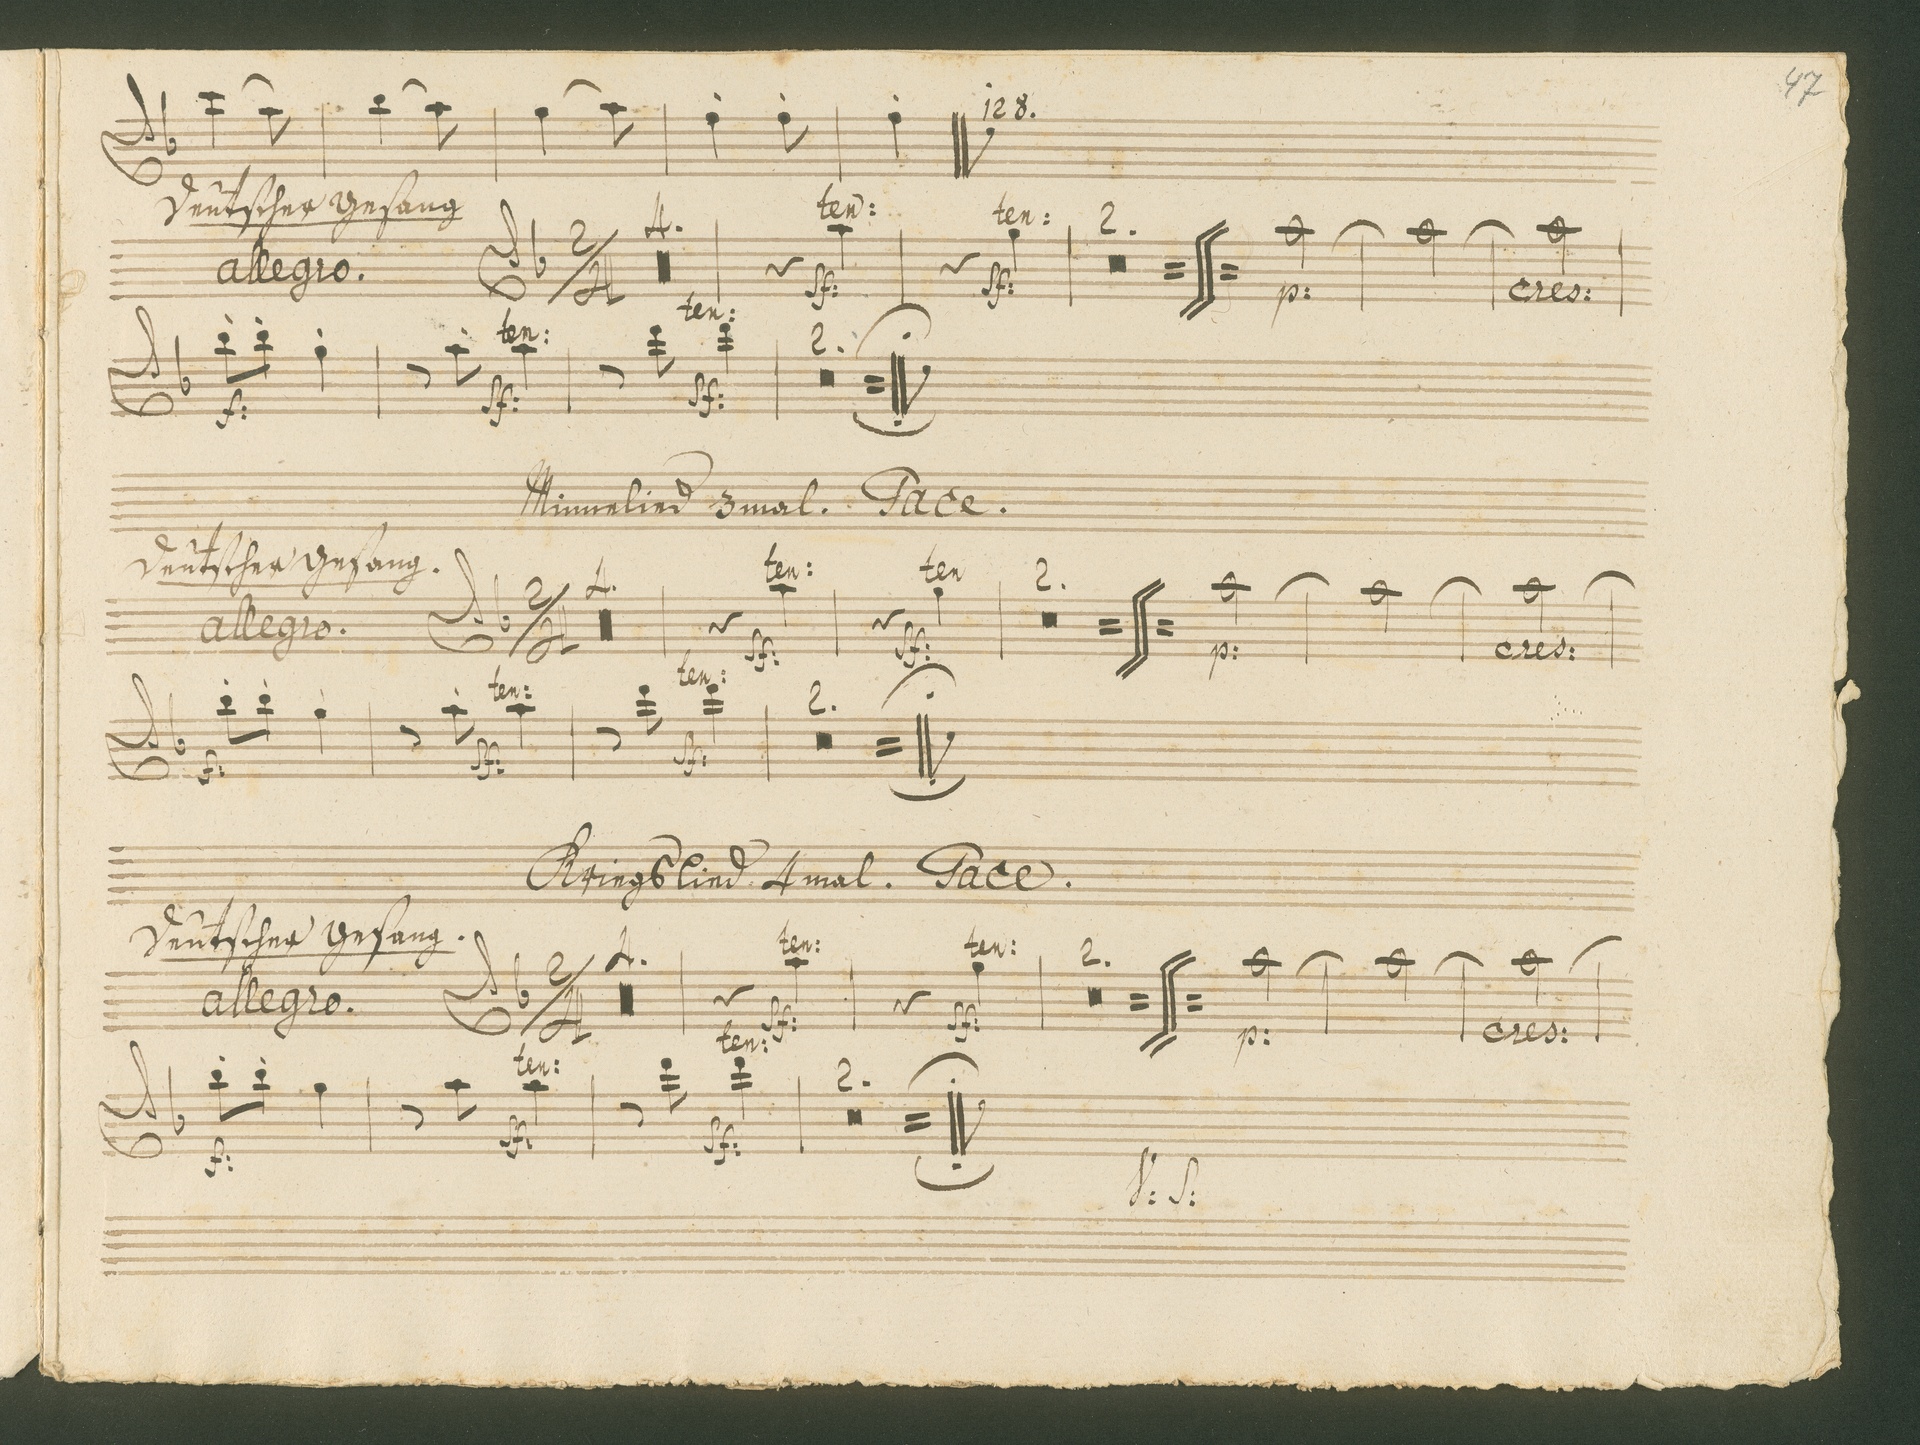 47
128.
Deutscher Gesang
ten: ten:
4. 2.
allegro. 2/4 sf: sf: p: cres:
ten: ten: 2.
f: sf: sf:
Minnelied 3mal. Tace.
Deutscher Gesang.
ten: ten
4. 2.
allegro. 2/4 sf: sf: p: cres:
ten: ten: 2.
f: sf: sf:
Kriegslied 4mal. Tace.
Deutscher Gesang.
ten: ten:
4. 2.
allegro. 2/4 sf: sf: p: cres:
ten: ten: 2.
f: sf: sf:
V: S: